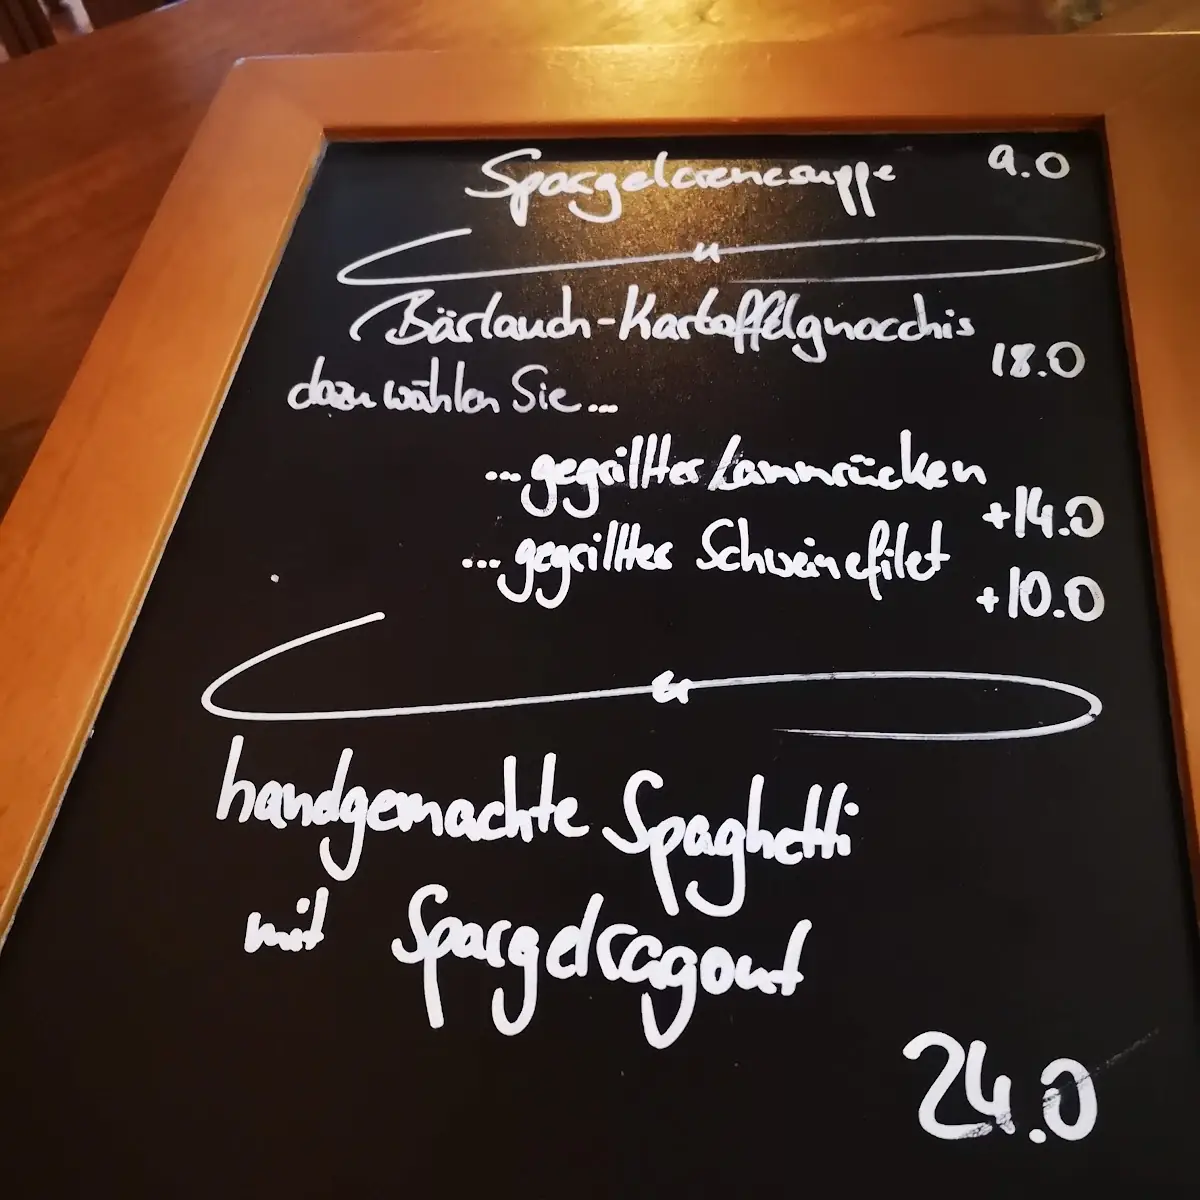 Spargelcremesuppe 9.0
Bärlauch-Kartoffelgnocchis
18.0
dazu wählen Sie...
...gegrillter Lammrücken
+14.0
...gegrilltes Schweinefilet
+10.0
handgemachte Spaghetti
mit Spargelragout
24.0